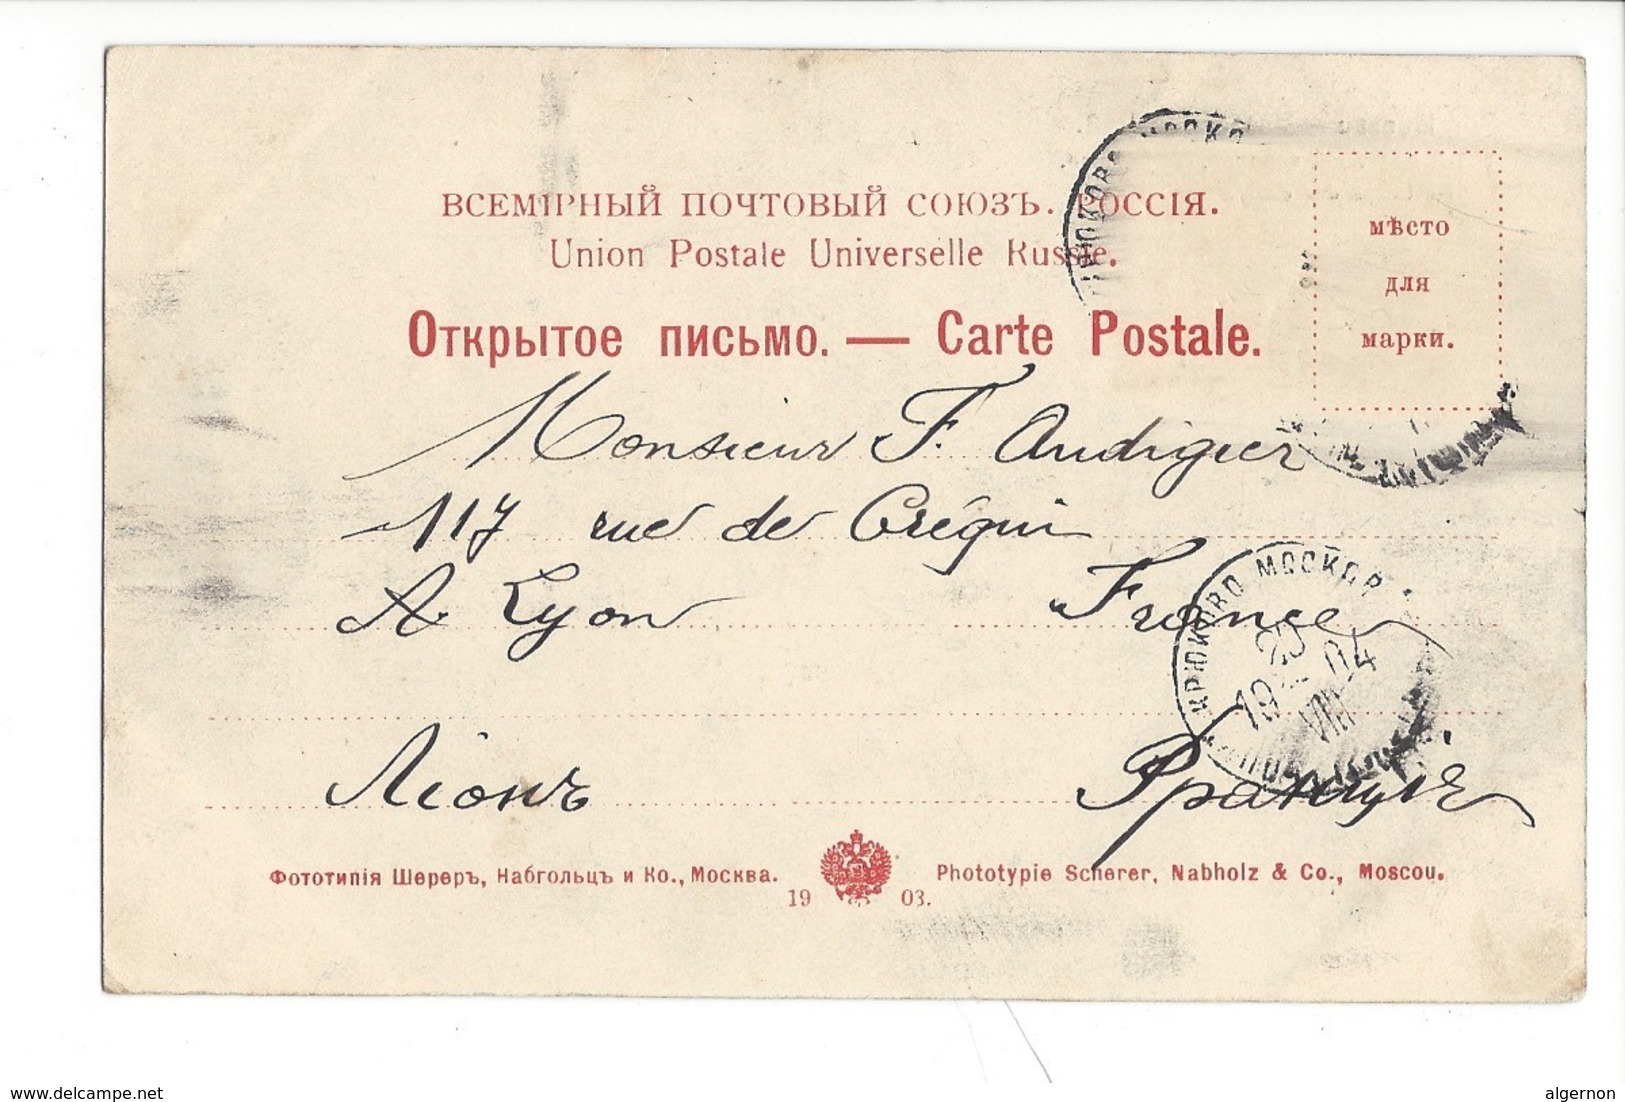 ВСЕМІРНЫЙ ПОЧТОВЫЙ СОЮЗЪ. РОССІЯ.
Union Postale Universelle Russie.
Открытое письмо. — Carte Postale.
мѣсто
для
марки.
Monsieur F. Audigier
117 rue de Créqui
A Lyon France
КРЮКОВО МОСКОВ
20
19 04
VIII
Ліонъ Франція
Фототипія Шереръ, Набгольцъ и Ко., Москва.
Phototypie Scherer, Nabholz & Co., Moscou.
19 03.
delcampe.net
algernon